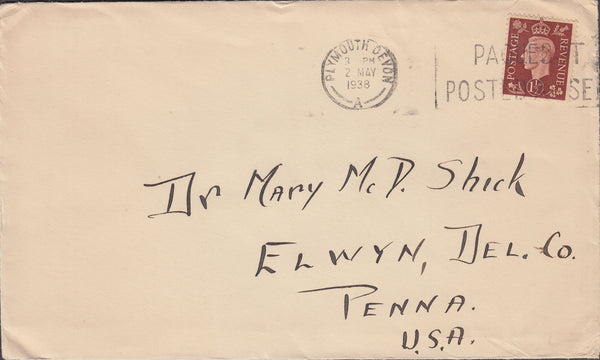 PLYMOUTH DEVON
3 PM
2 MAY
1938
A
POSTAGE REVENUE
Dr Mary McD. Shick
ELWYN, DEL. Co.
PENNA.
U.S.A.